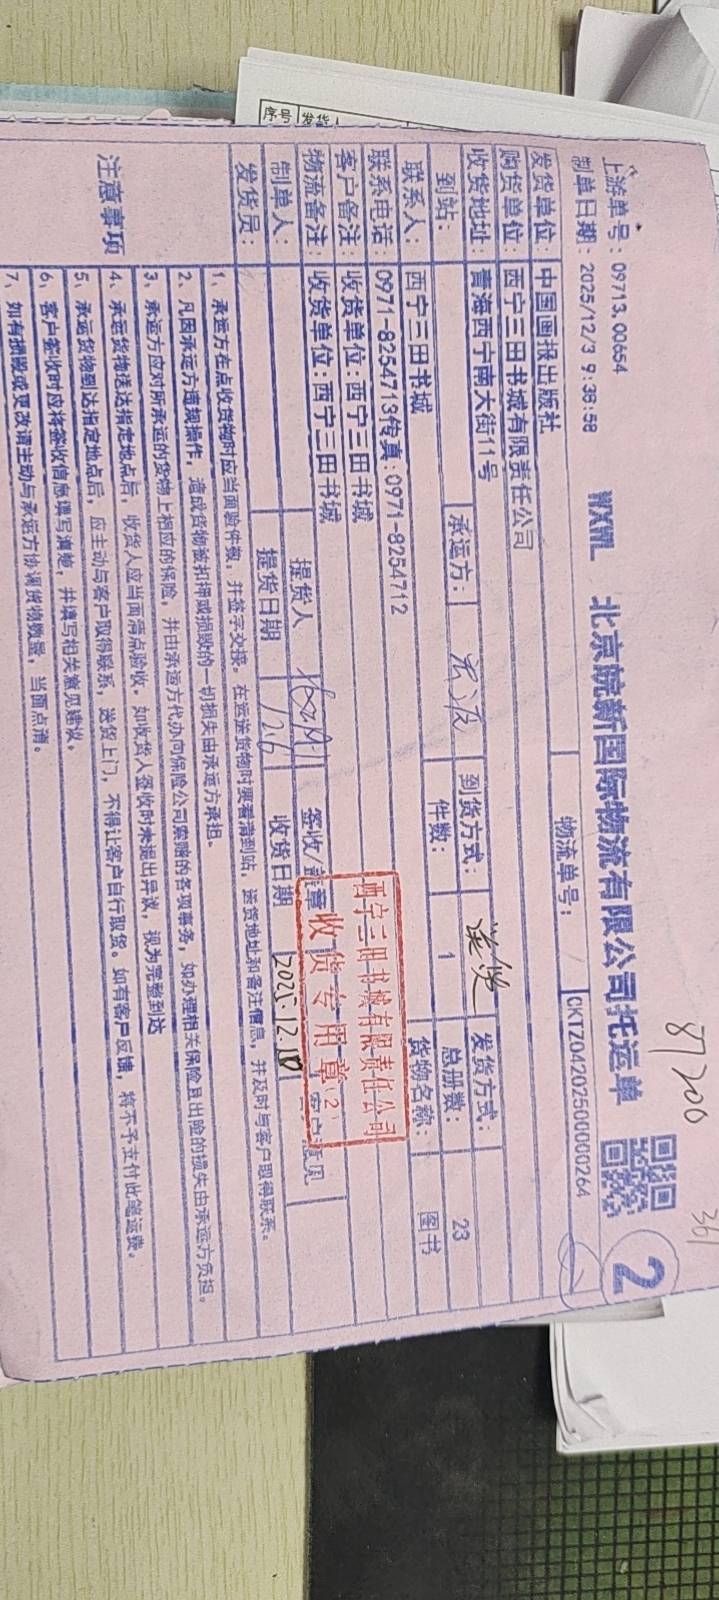 序号 发货人
87200
361
WXWL 北京皖新国际物流有限公司托运单
2
上游单号：09713.00654
制单日期：2025/12/3 9:38:58
物流单号： CKTZ0420250000264
发货单位：中国画报出版社
购货单位：西宁三田书城有限责任公司
收货地址：青海西宁南大街11号 到货方式： 发货方式：
到站： 承运方： 件数：1 总册数：23
联系人：西宁三田书城 货物名称：图书
联系电话：0971-8254713传真:0971-8254712
客户备注：收货单位:西宁三田书城
物流备注：收货单位:西宁三田书城
西宁三田书城有限责任公司
收货专用章(2)
制单人： 提货人 签收/盖章 客户意见
发货员： 提货日期 12.6 收货日期 2025.12.10
注意事项
1、承运方在点收货物时应当面验件数，并签字交接。在运送货物时要看清到站，送货地址和备注信息，并及时与客户取得联系。
2、凡因承运方违规操作，造成货物被扣押或损毁的一切损失由承运方承担。
3、承运方应对所承运的货物上相应的保险，并由承运方代办向保险公司索赔的各项事务，如办理相关保险且出险的损失由承运方负担。
4、承运货物送达指定地点后，收货人应当面清点验收。如收货人签收时未提出异议，视为完整到达
5、承运货物到达指定地点后，应主动与客户取得联系，送货上门，不得让客户自行取货。如有客户反馈，将不予支付此笔运费。
6、客户签收时应将签收信息填写清楚，并填写相关意见建议。
7、如有损毁或更改请主动与承运方协调货物数量，当面点清。